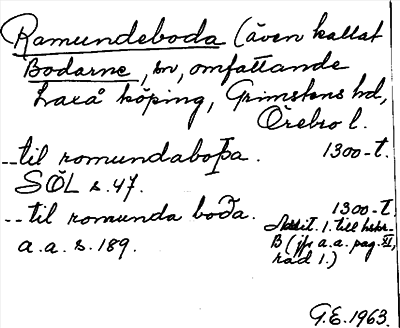 Ramundeboda (även kallat
Bodarne, sn, omfattande
Laxå köping, Grimstens hd,
Örebro l.
--til romundaboþa. 1300-t.
SÖL s. 47.
--til romunda boða. 1300-t.
Addit. 1. till hskr.
a.a. s. 189. B (jfr a.a. pag. XI,
rad 1.)
G.E. 1963.